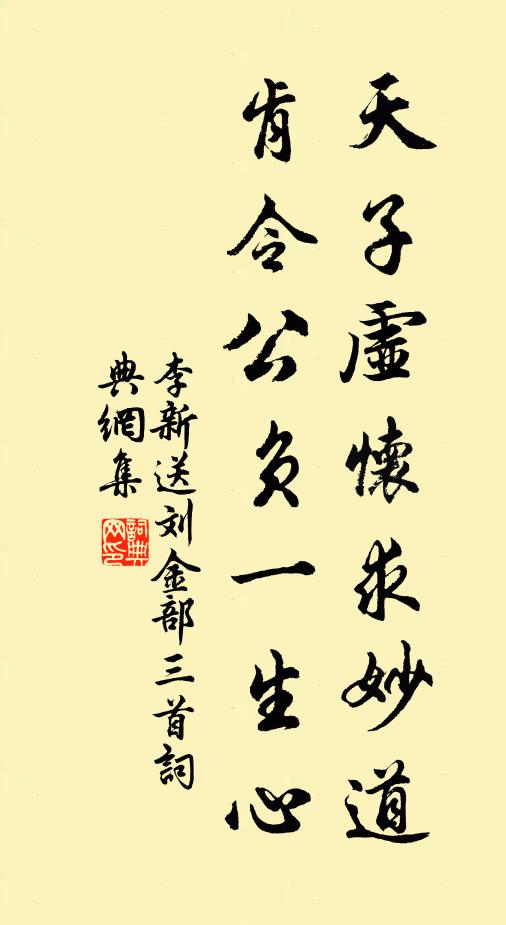 天子虛懷求妙道
肯令公負一生心
李新送刘金部三首詞
典網集
詞典網印